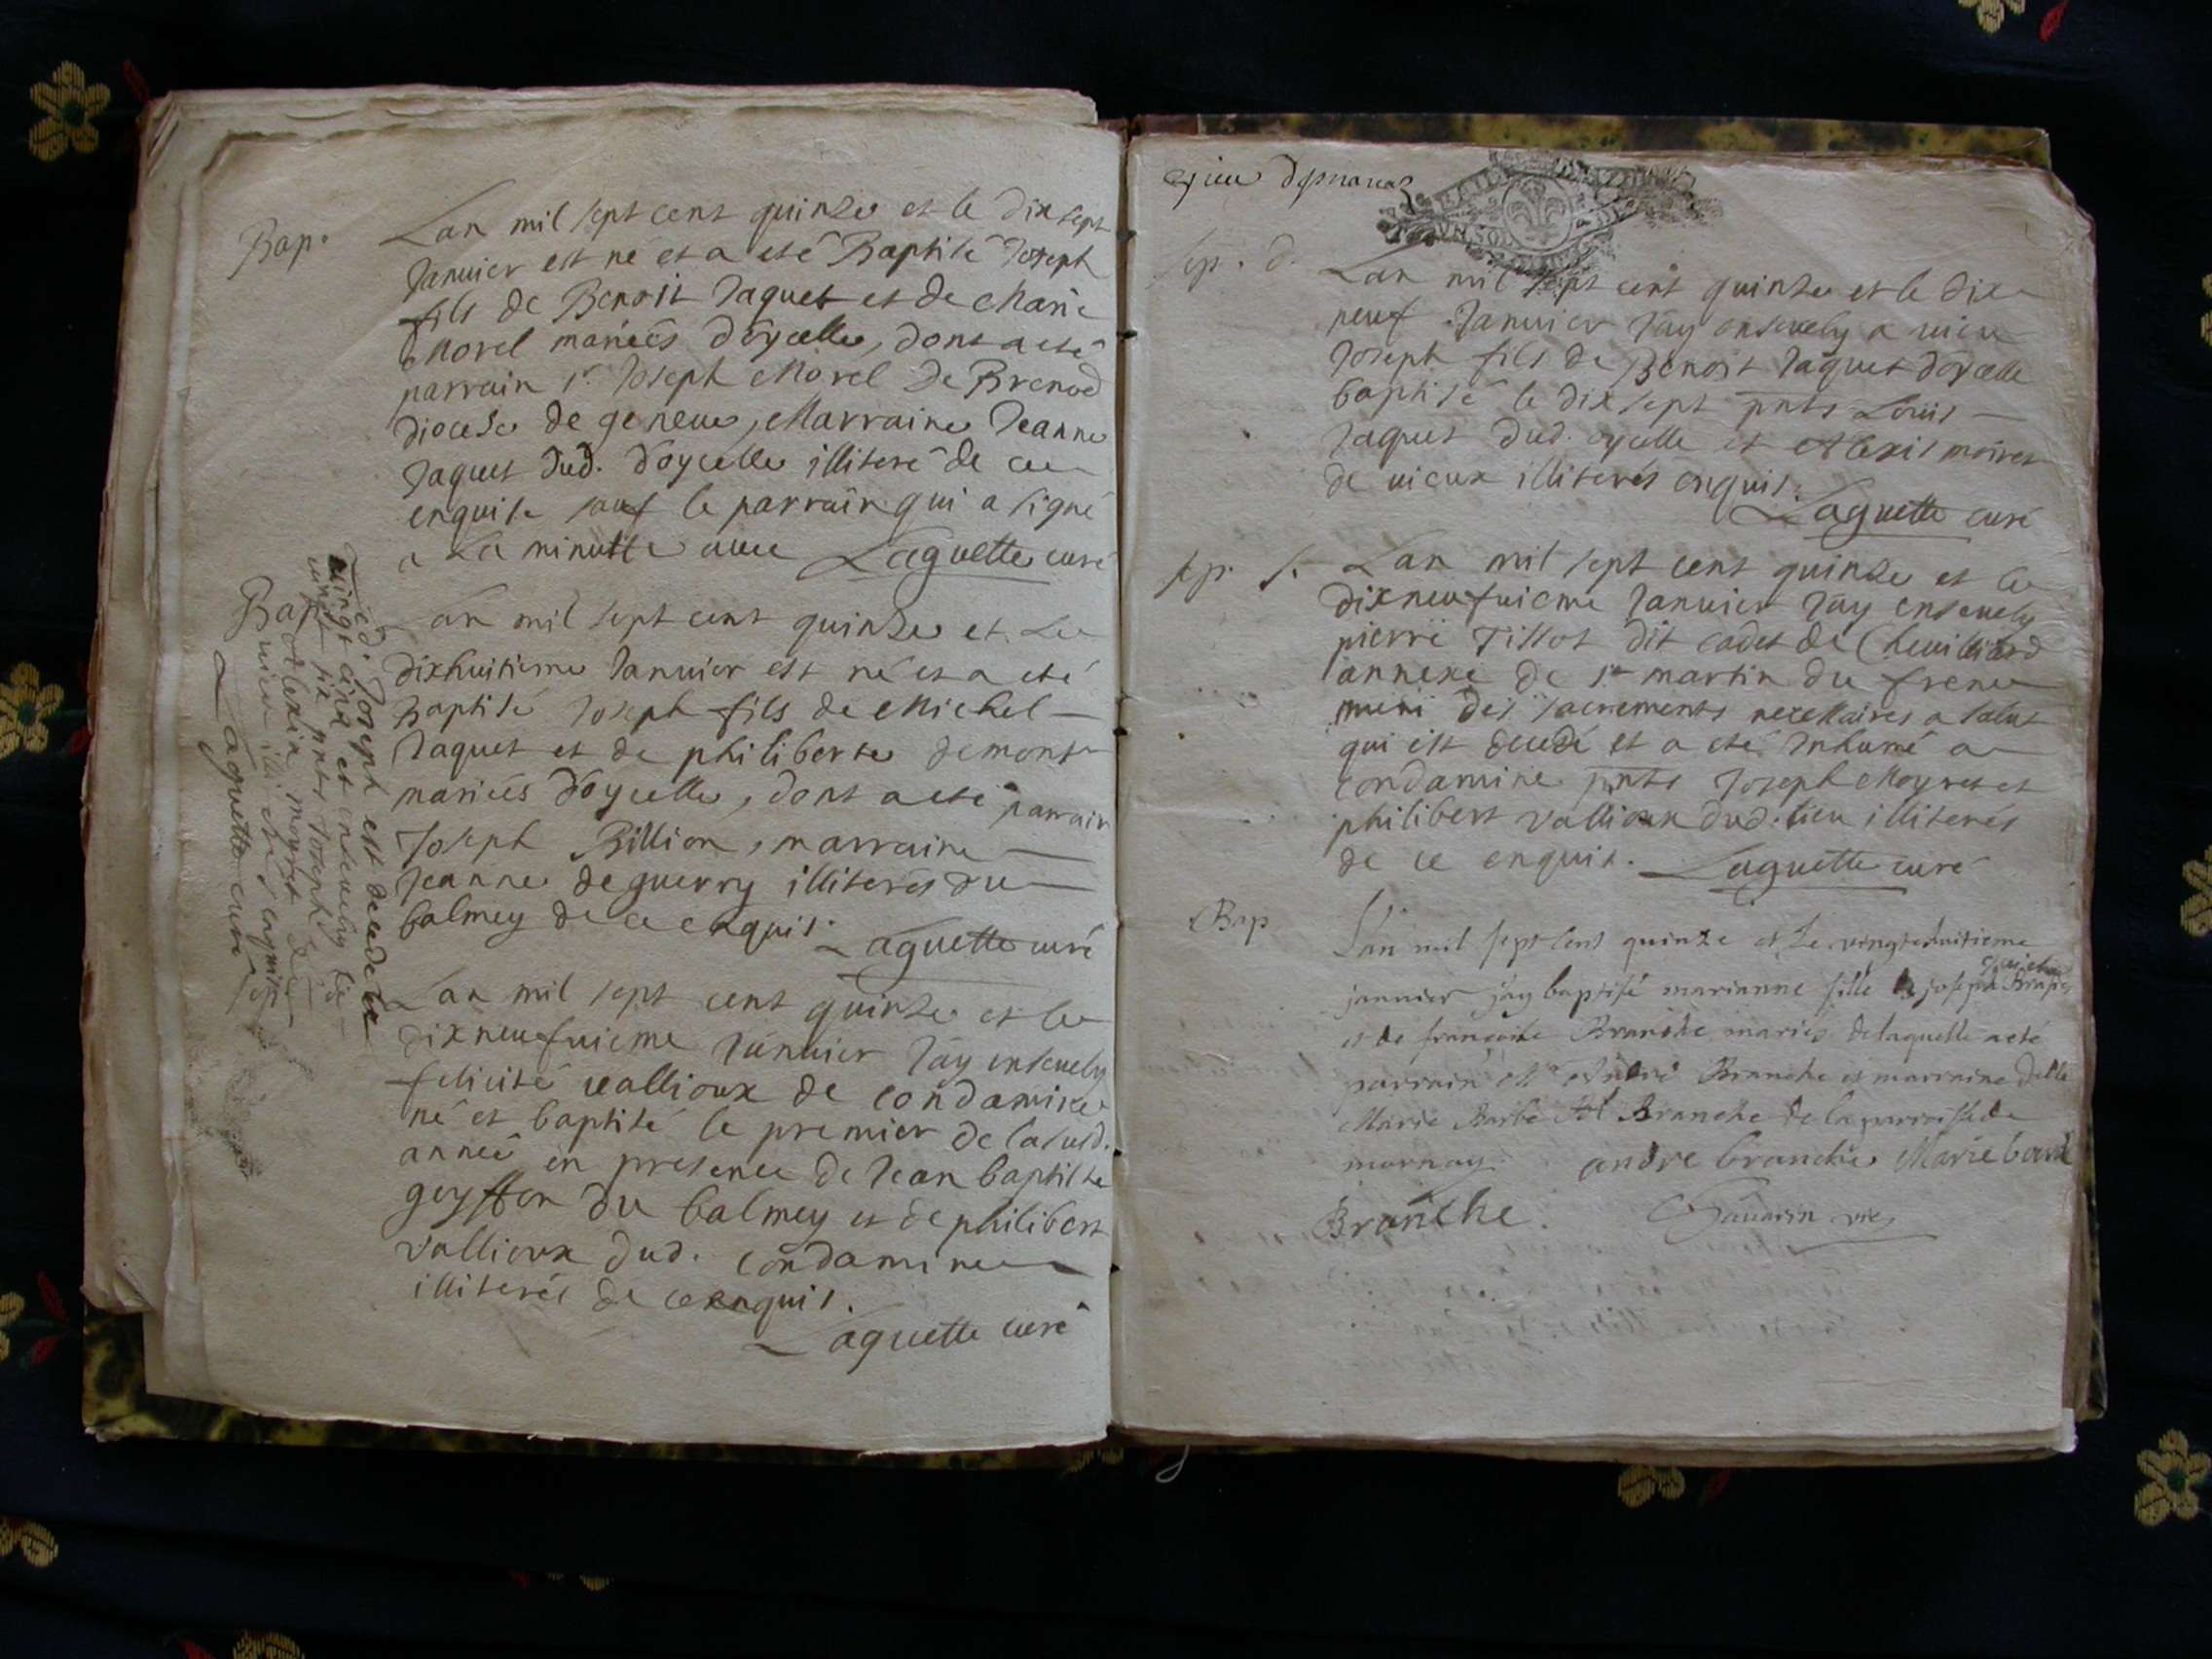 Bap.
Lan mil sept cent quinze et le dix sept
Janvier est né et a esté Baptisé Joseph
fils de Benoit Jaquet et de Marie
Morel mariés d'oycelle, dont a eté
parrain sr. Joseph Morel de Brenod
diocese de geneve, Marraine Jeanne
Jaquet dud. d'oycelle illiteré de ce
enquise sauf le parrain qui a signé
a La minutte avec Laguette curé
Bap
Lan mil sept cent quinze et Le
dixhuitieme Janvier est né et a eté
baptisé Joseph fils de Michel
Jaquet et de philiberte demont
mariés d'oycelle, dont a eté parrain
Joseph Billion, marraine
Jeanne deguerry illiterés du
balmey de ce enquis. Laguette curé
led. Joseph est decedé le
vingt cinq et ensevely le
vingt six pnts Joseph
et alexis moyret de
vieu enquis
Laguette curé
Lan mil sept cent quinze et le
dixneufvieme Janvier J'ay ensevely
felicité vallioux de condamine
né et baptisé le premier de lasusd.
année en presence de Jean baptiste
goyffon du balmey et de philibert
vallioux dud. condamine
illiterés de ce enquis.
Laguette curé
sep. d.
Lan mil sept cent quinze et le dix
neuf Janvier J'ay ensevely a vieu
Joseph fils de Benoit Jaquet d'oycelle
baptisé le dix sept pnts Louis
Jaquet dud. oycelle et Alexis moiret
de vieux illiterés enquis.
Laguette curé
sep. s.
Lan mil sept cent quinze et le
dixneufvieme Janvier J'ay ensevely
pierre Tissot dit cadet de Chevillard
annexe de st martin du frene
muni des sacrements necessaires a salut
qui est decedé et a eté Inhumé a
condamine pnts Joseph Moyret et
philibert vallioux dud. lieu illiterés
de ce enquis. Laguette curé
Bap
L'an mil sept cent quinze et Le vingthuitieme
janvier j'ay baptisé marianne fille de joseph
et de francoise Branche mariés delaquelle a eté
parrain sr andré Branche et marraine delle
Marie Barbe Branche de la parroisse de
mornay. andre branche Marie barbe
Branche. Savarin vic.